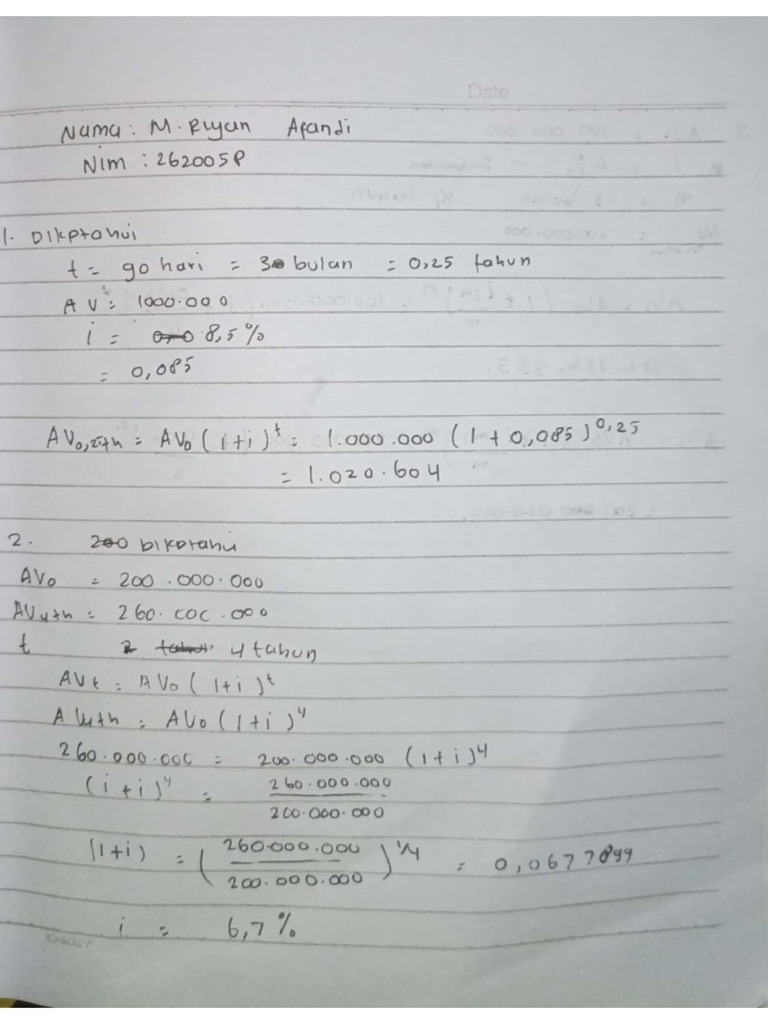 Date
Nama : M. Riyan Afandi
Nim : 262005P
1. Diketahui
t = 90 hari = 3 bulan = 0,25 tahun
AV = 1000.000
i = 8,5%
= 0,085
AV0,25th = AV0 (1+i)^t = 1.000.000 (1 + 0,085)^0,25
= 1.020.604
2. Diketahui
AV0 = 200.000.000
AV4th = 260.000.000
t 4 tahun
AVt = AV0 (1+i)^t
AV4th = AV0 (1+i)^4
260.000.000 = 200.000.000 (1+i)^4
(i+i)^4 = 260.000.000 / 200.000.000
(1+i) = (260.000.000 / 200.000.000)^1/4 = 0,0677899
i = 6,7%